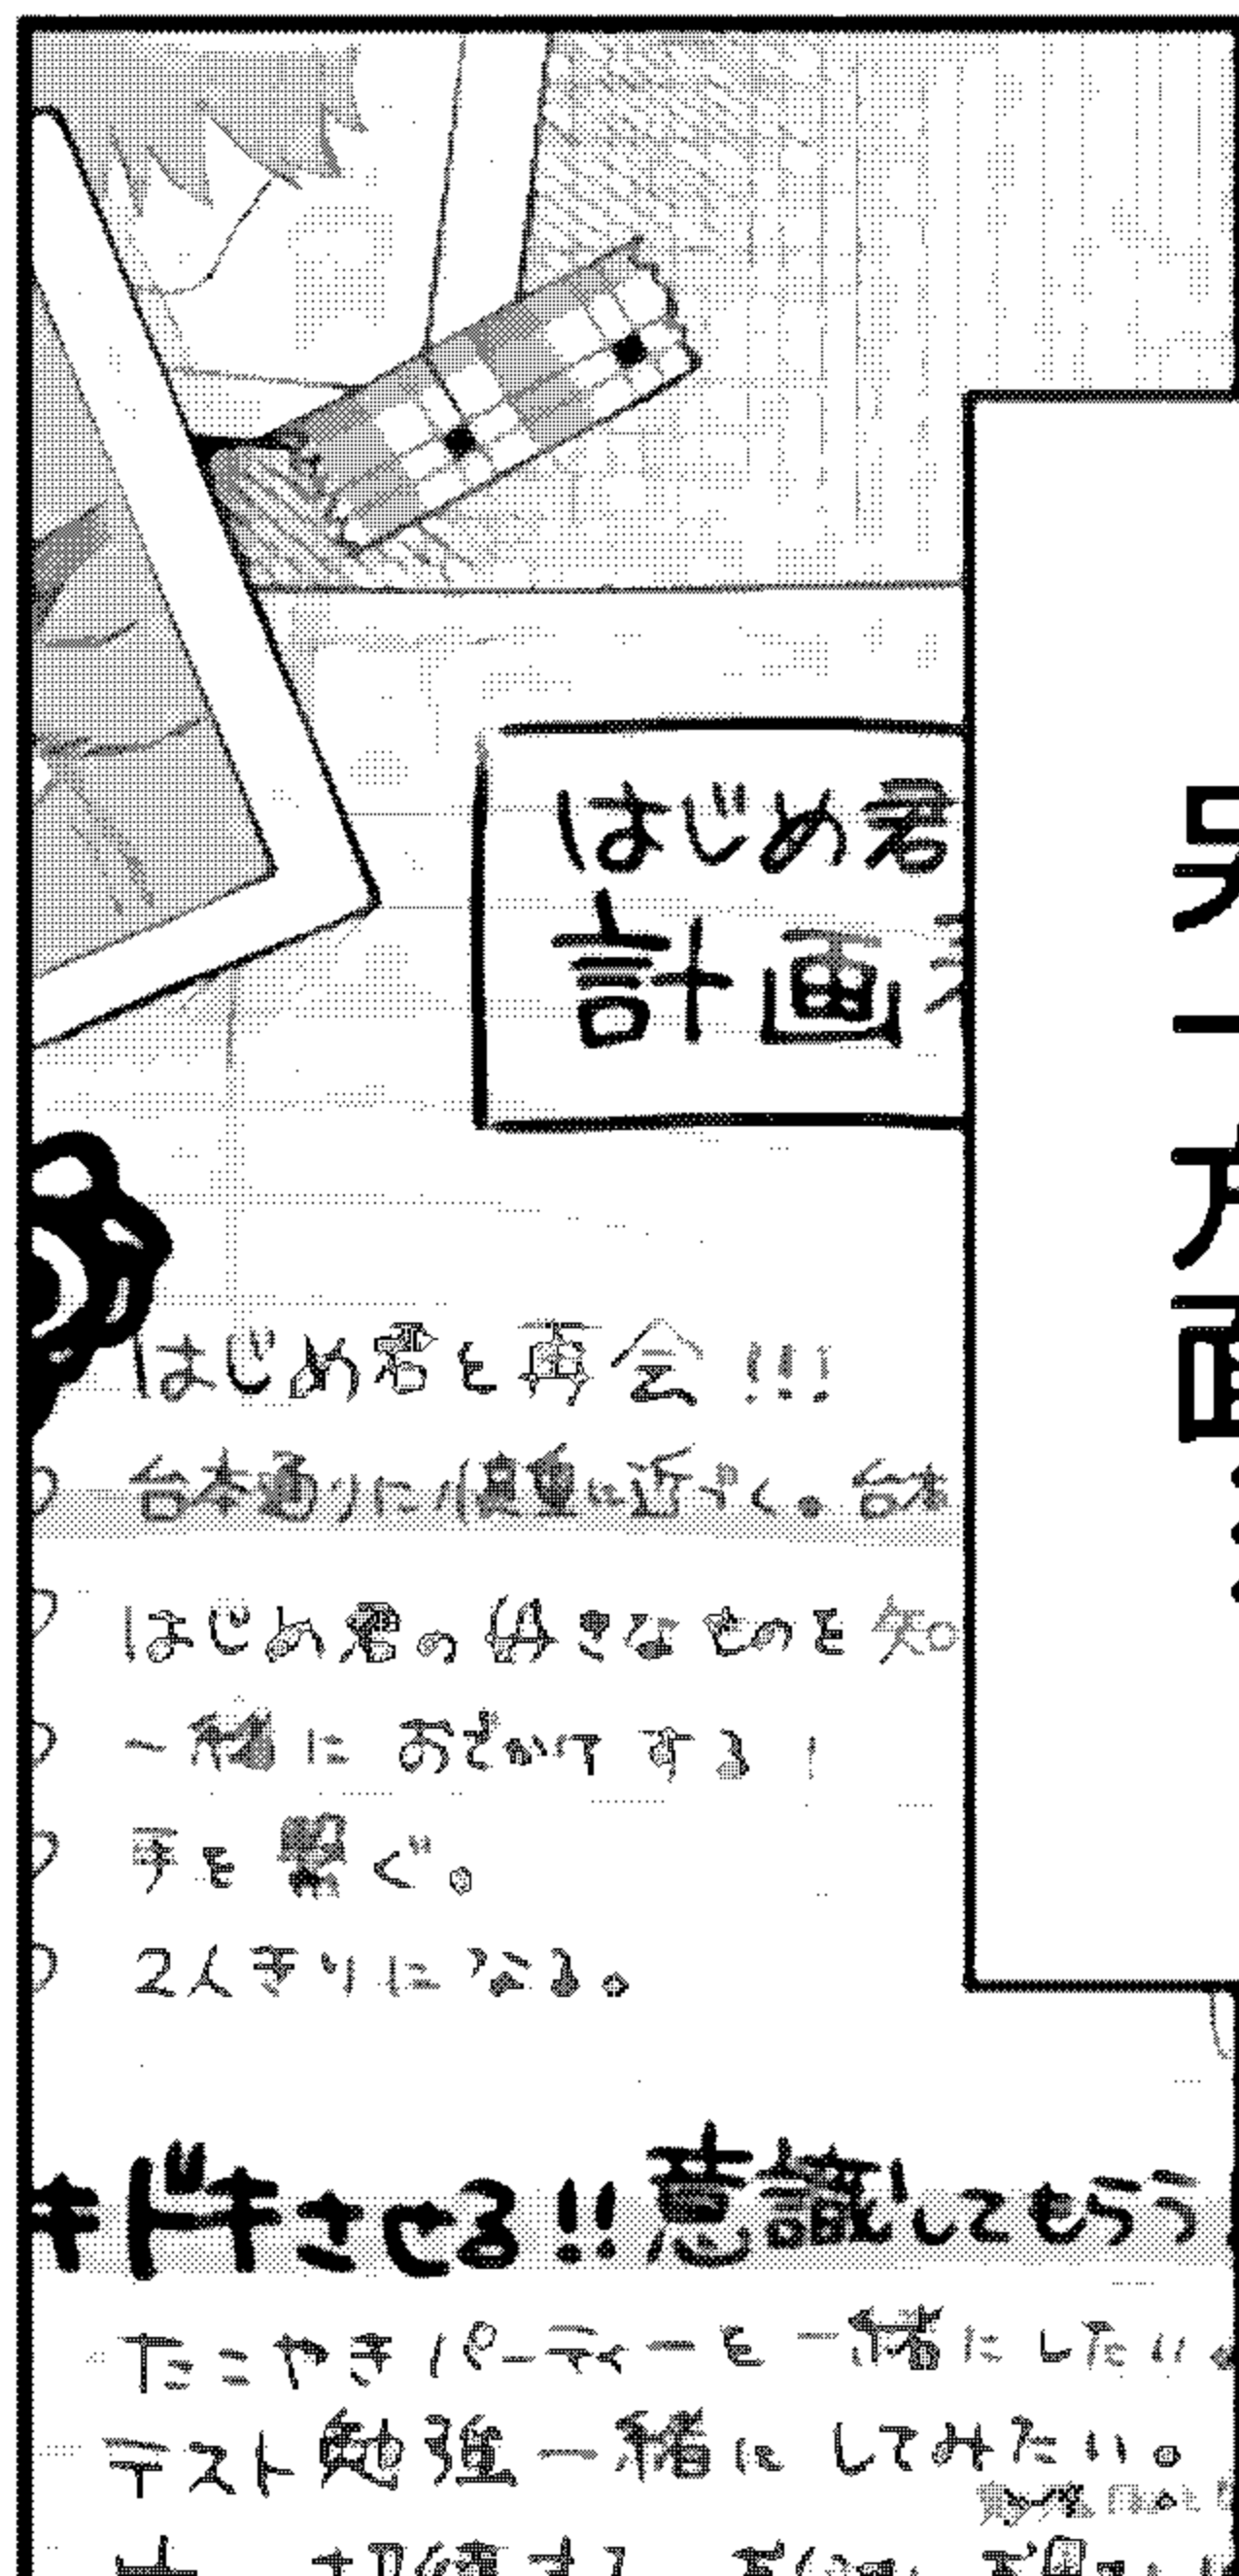 はじめ君
計画
はじめ君と再会!!!
台本通りに慎重に近づく。台本
はじめ君の好きなものを知
一緒におでかけする!
手を繋ぐ。
2人きりになる。
キドキさせる!!意識してもらう
たこやきパーティーを一緒にしたい。
テスト勉強一緒にしてみたい。